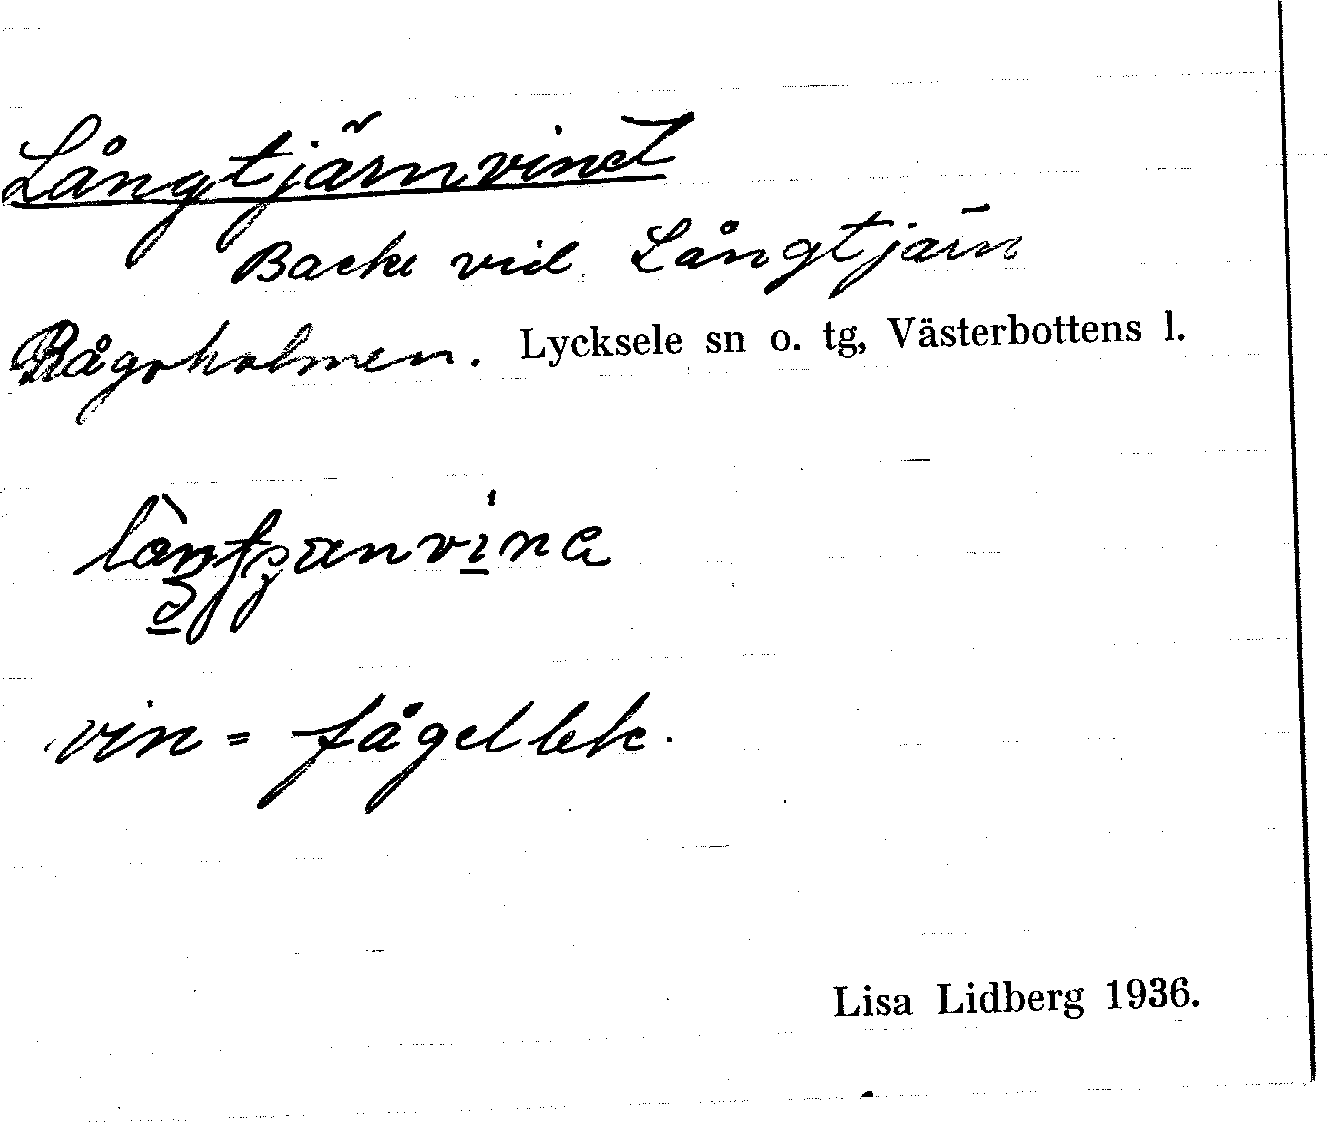 Långtjärnvinet
Backe vid Långtjärn
Rågoholmen. Lycksele sn o. tg, Västerbottens l.
vin = fågellek.
Lisa Lidberg 1936.